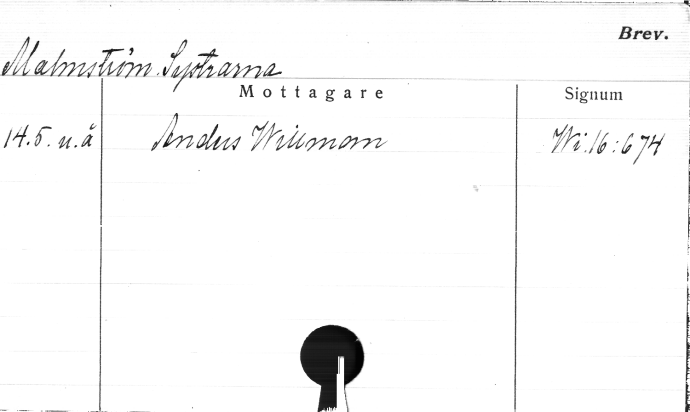 Brev.
Malmström, Systrarna
Mottagare Signum
14.5. u.å Anders Willman Wi.16:674